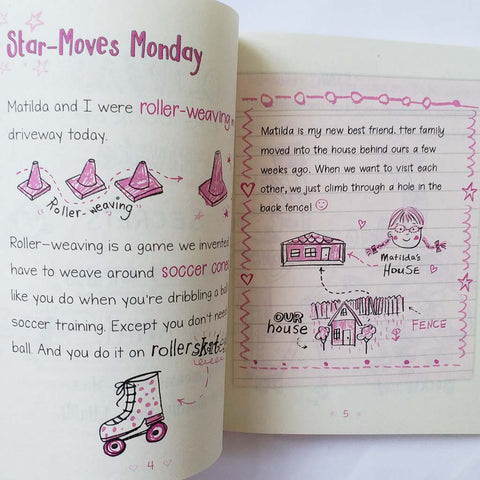 Star-Moves Monday
Matilda and I were roller-weaving
driveway today.
Roller-weaving
Roller-weaving is a game we invented
have to weave around soccer cones
like you do when you're dribbling a ball
soccer training. Except you don't need
ball. And you do it on roller
4
Matilda is my new best friend. Her family
moved into the house behind ours a few
weeks ago. When we want to visit each
other, we just climb through a hole in the
back fence!
Matilda's
House
OUR
house
FENCE
5